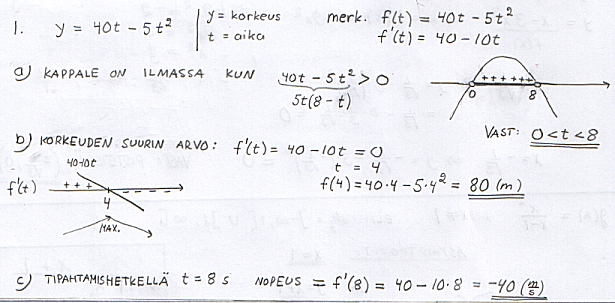 1. y = 40t - 5t² | y = korkeus merk. f(t) = 40t - 5t²
t = aika f'(t) = 40 - 10t
a) KAPPALE ON ILMASSA KUN 40t - 5t² > 0
5t(8 - t)
+ + + + + +
0 8
VAST: 0 < t < 8
b) KORKEUDEN SUURIN ARVO: f'(t) = 40 - 10t = 0
t = 4
f(4) = 40·4 - 5·4² = 80 (m)
40-10t
f'(t) + + + - - - -
4
MAX.
c) TIPAHTAMISHETKELLÄ t = 8 s NOPEUS = f'(8) = 40 - 10·8 = -40 (m/s)